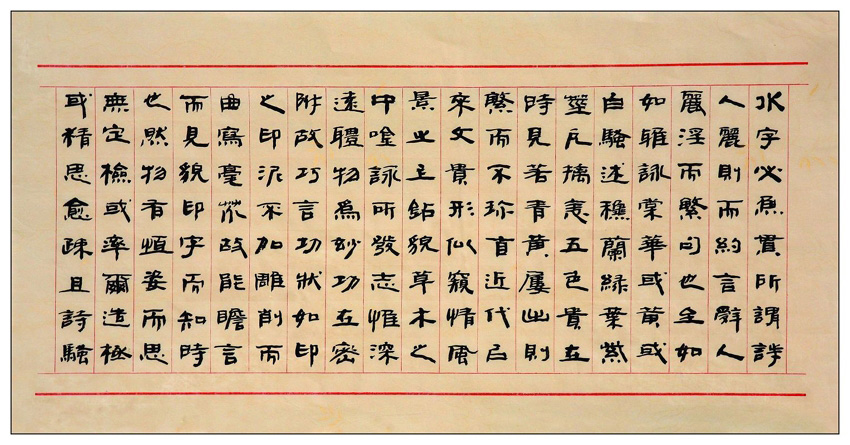 水字必魚貫所謂詩
人麗則而約言辭人
麗淫而繁句也至如
如雅詠棠華或黃或
白騷述穐蘭綠葉紫
莖凡摛表五色貴在
時見若青黃屢出則
繁而不珍自近代以
來文貴形似窺情風
景之上鉆貌草木之
中唫詠所發志惟深
遠體物為妙功在密
附故巧言功狀如印
之印泥不加雕削而
曲寫毫芥故能瞻言
而見貌印字而知時
也然物有恒姿而思
無定檢或率爾造極
或精思愈疎且詩騷